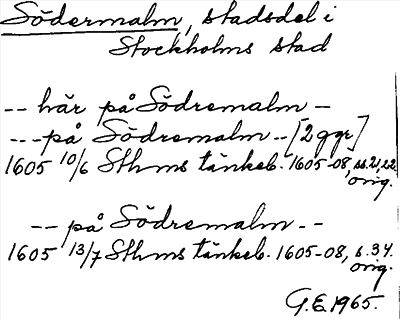 Södermalm, stadsdel i
Stockholms stad
-- här på Södremalm -
--- på Södremalm -- [2 ggr]
1605 10/6 Sthms tänkeb. 1605-08, ss. 21, 22.
orig.
-- på Södremalm --
1605 13/7 Sthms tänkeb. 1605-08, s. 34.
orig.
G.E. 1965.